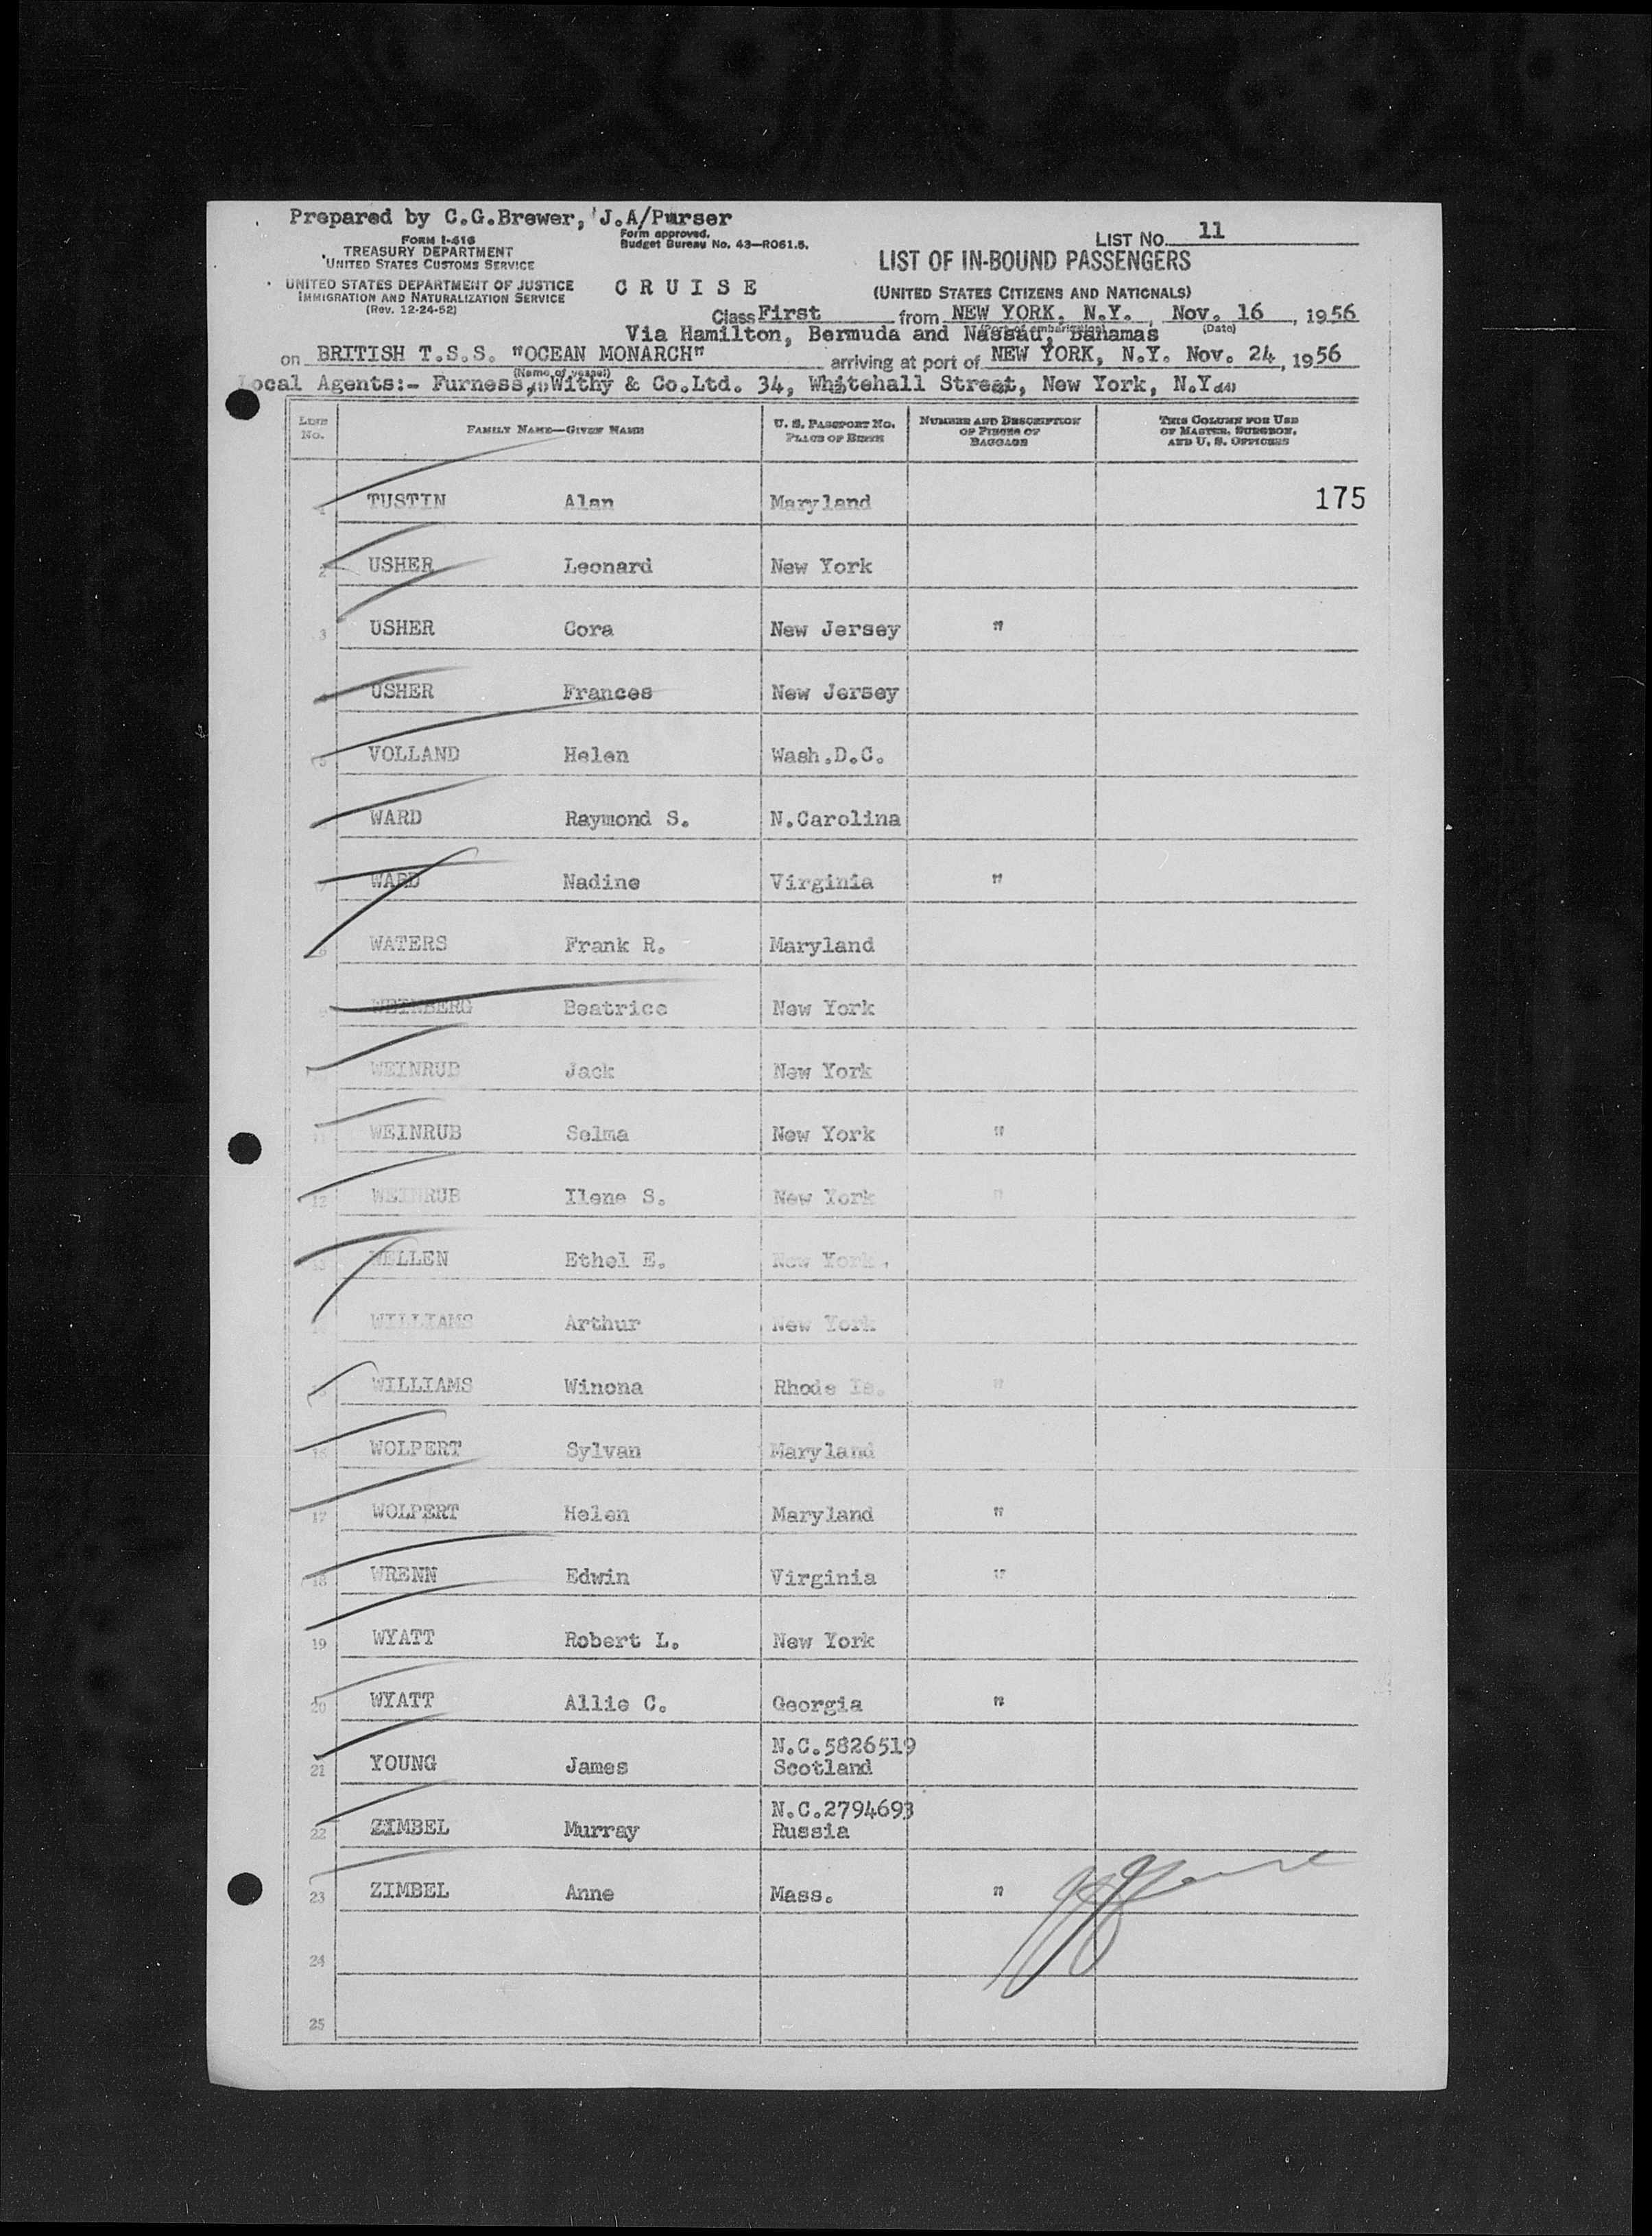 Prepared by C.G.Brewer, J.A/Purser
FORM I-416
TREASURY DEPARTMENT
UNITED STATES CUSTOMS SERVICE
UNITED STATES DEPARTMENT OF JUSTICE
IMMIGRATION AND NATURALIZATION SERVICE
(Rev. 12-24-52)
Form approved.
Budget Bureau No. 43—RO61.5.
CRUISE
LIST NO. 11
LIST OF IN-BOUND PASSENGERS
(UNITED STATES CITIZENS AND NATIONALS)
Class First from NEW YORK, N.Y., Nov. 16, 1956
(Port of embarkation) (Date)
Via Hamilton, Bermuda and Nassau, Bahamas
on BRITISH T.S.S. "OCEAN MONARCH" arriving at port of NEW YORK, N.Y. Nov. 24, 1956
(Name of vessel)
Local Agents:- Furness, Withy & Co.Ltd. 34, Whitehall Street, New York, N.Y.
LINE NO. FAMILY NAME—GIVEN NAME U. S. PASSPORT NO. PLACE OF BIRTH NUMBER AND DESCRIPTION OF PIECES OF BAGGAGE THIS COLUMN FOR USE OF MASTER, SURGEON, AND U. S. OFFICERS
1 TUSTIN Alan Maryland 175
2 USHER Leonard New York
3 USHER Cora New Jersey "
4 USHER Frances New Jersey
5 VOLLAND Helen Wash.D.C.
WARD Raymond S. N.Carolina
WARD Nadine Virginia "
WATERS Frank R. Maryland
9 WEINBERG Beatrice New York
WEINRUB Jack New York
11 WEINRUB Selma New York "
12 WEINRUB Ilene S. New York "
13 WELLEN Ethel E. New York.
14 WILLIAMS Arthur New York
15 WILLIAMS Winona Rhode Is. "
16 WOLPERT Sylvan Maryland
17 WOLPERT Helen Maryland "
18 WRENN Edwin Virginia "
19 WYATT Robert L. New York
20 WYATT Allie C. Georgia "
21 YOUNG James N.C.5826519 Scotland
22 ZIMBEL Murray N.C.2794693 Russia
23 ZIMBEL Anne Mass. "
24
25